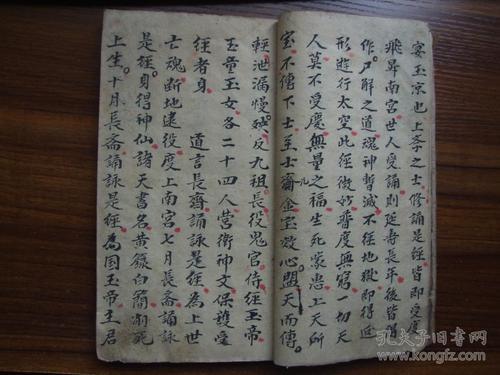 宴玉京也上學之士修誦是經皆即受度
飛昇南宮世人受誦則延壽長年後皆
作尸解之道魂神暫滅不經地獄即得返
形遊行太空此經微妙普度無窮一切天
人莫不受慶無量之福生死蒙惠上天所
宝不傳下士至士齎金宝效心盟天而傳
輕泄漏慢殃及九祖長役鬼官侍經玉帝
玉童玉女各二十四人营衛神文保護受
經者身 道言長齋誦詠是經為上世
亡魂断地逮役度上南宮七月長斋誦詠
是經身得神仙諸天書名黄籙白簡削死
上生十月長斋誦詠是經為囯玉帝王君
孔夫子旧书网
www.kongfz.com